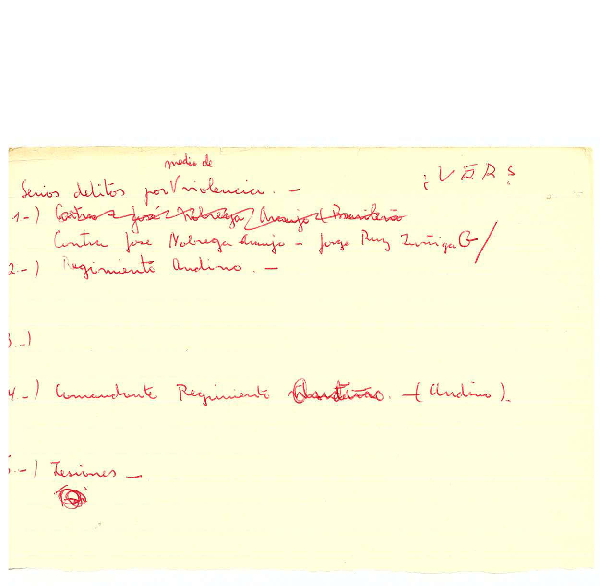 medio de
Serios delitos por violencia. —
¡VERS
1-) Contra José Nobrega Araujo (Brasileño
Contra Jose Nobrega Araujo - Jorge Ruz Zuñiga G/
2.-) Regimiento Andino. —
3.-)
4.-) Comandante Regimiento Andino. — (Andino).
5.-) Lesiones —